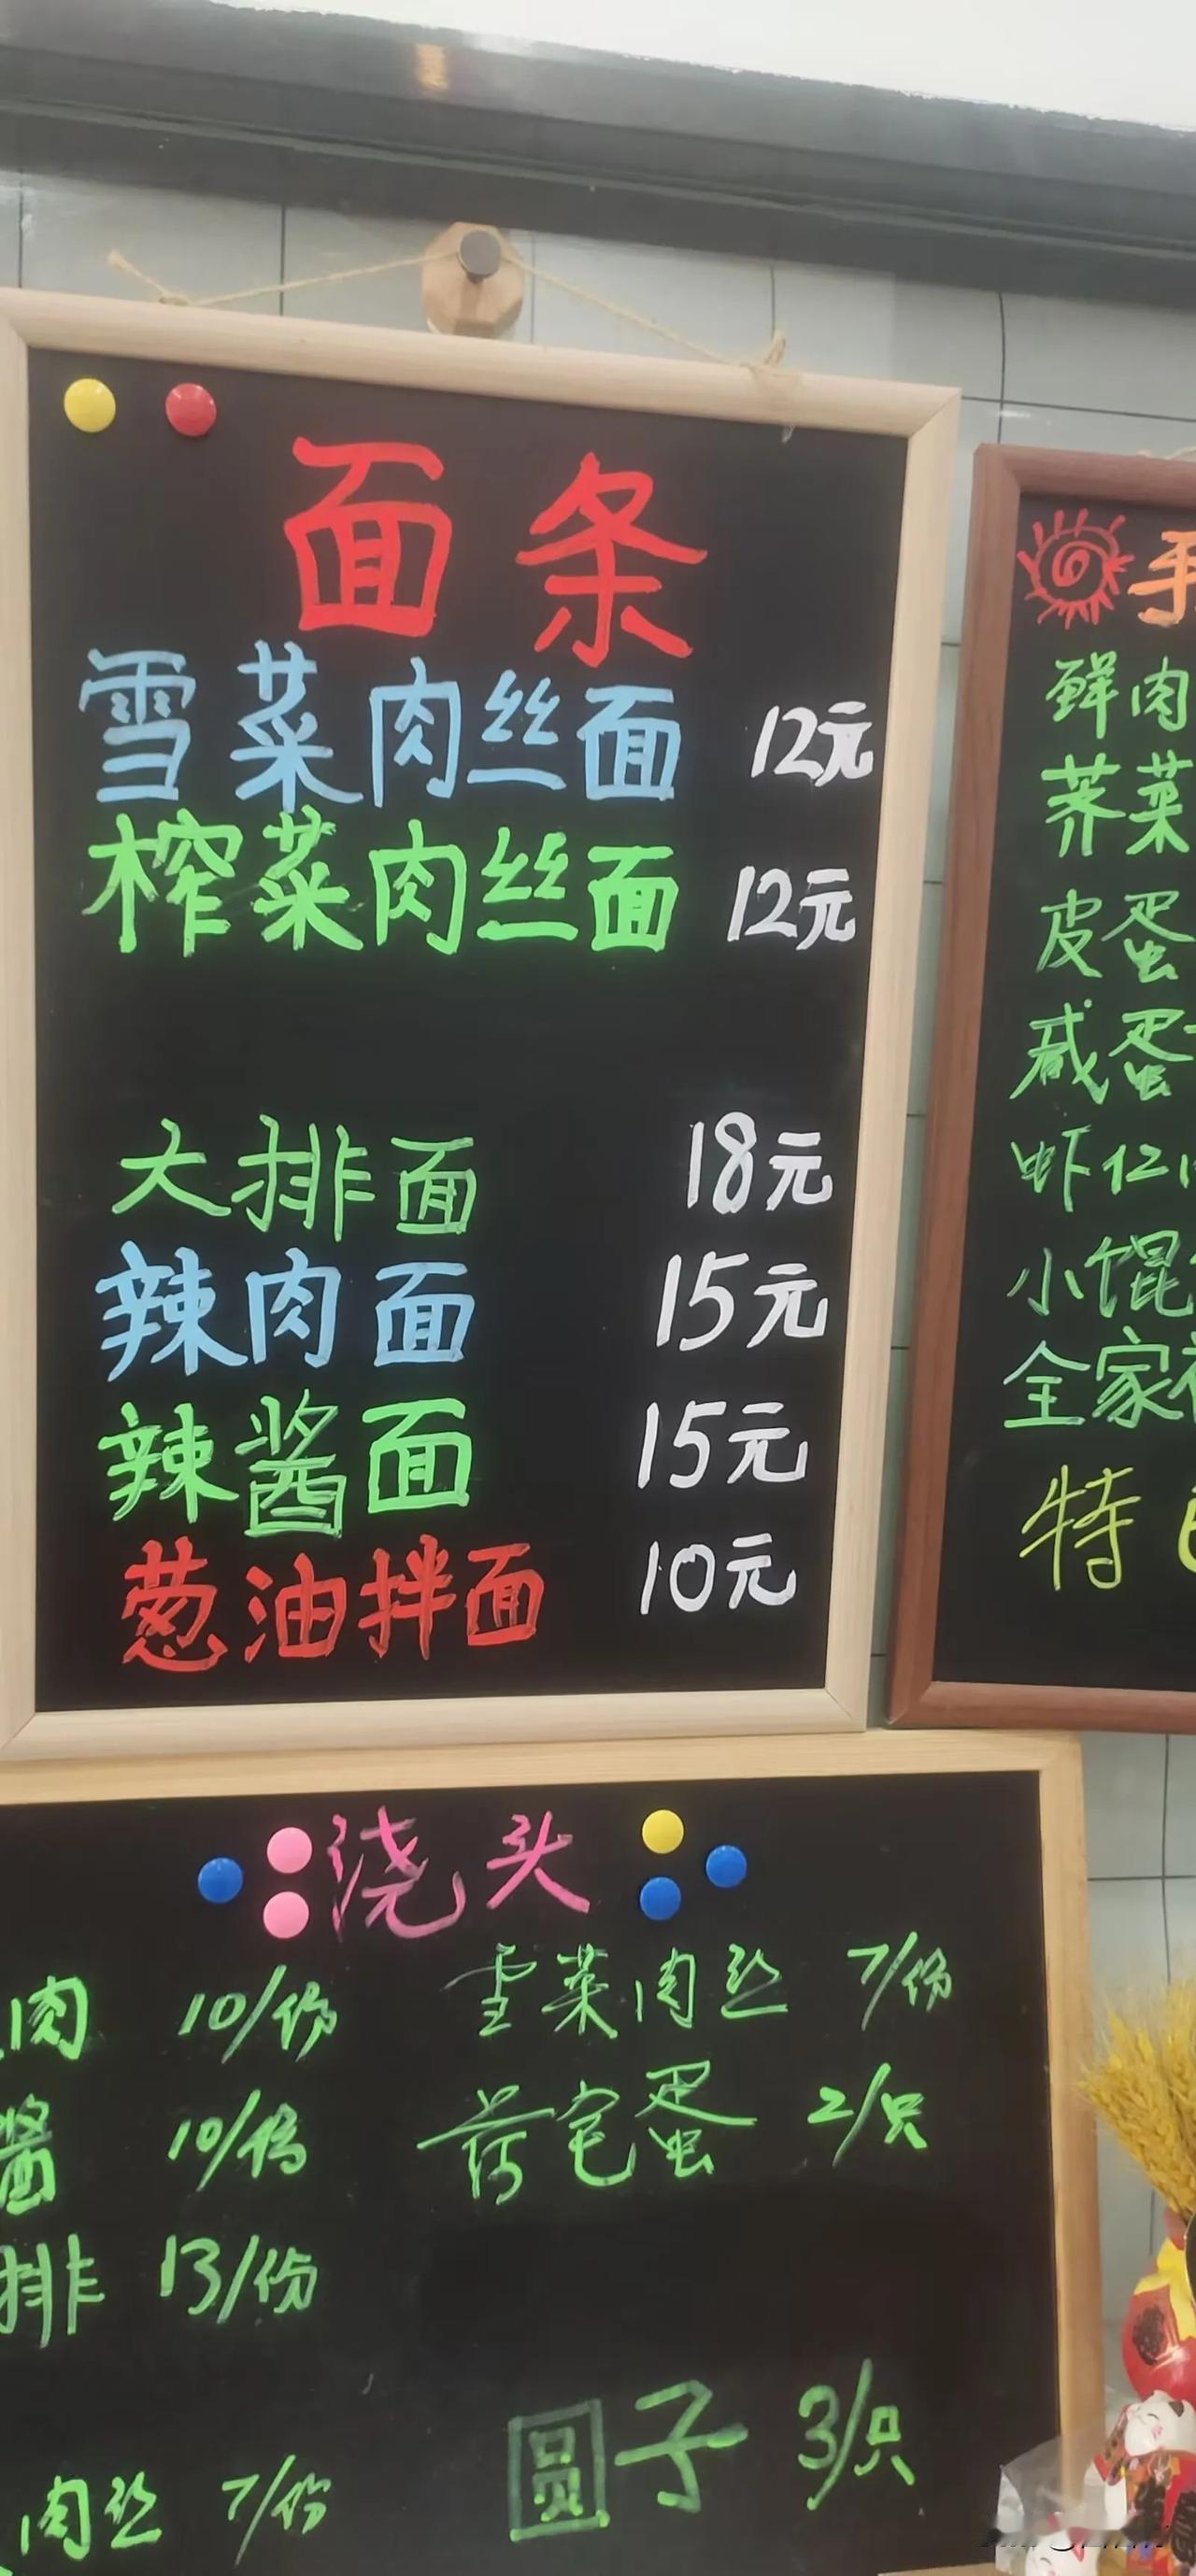 面条
雪菜肉丝面 12元
榨菜肉丝面 12元
大排面 18元
辣肉面 15元
辣酱面 15元
葱油拌面 10元
手
鲜肉
荠菜
皮蛋
咸蛋
虾仁
小馄
全家
特
浇头
肉 10/份
雪菜肉丝 7/份
酱 10/份
荷包蛋 2/只
排 13/份
圆子 3/只
肉丝 7/份